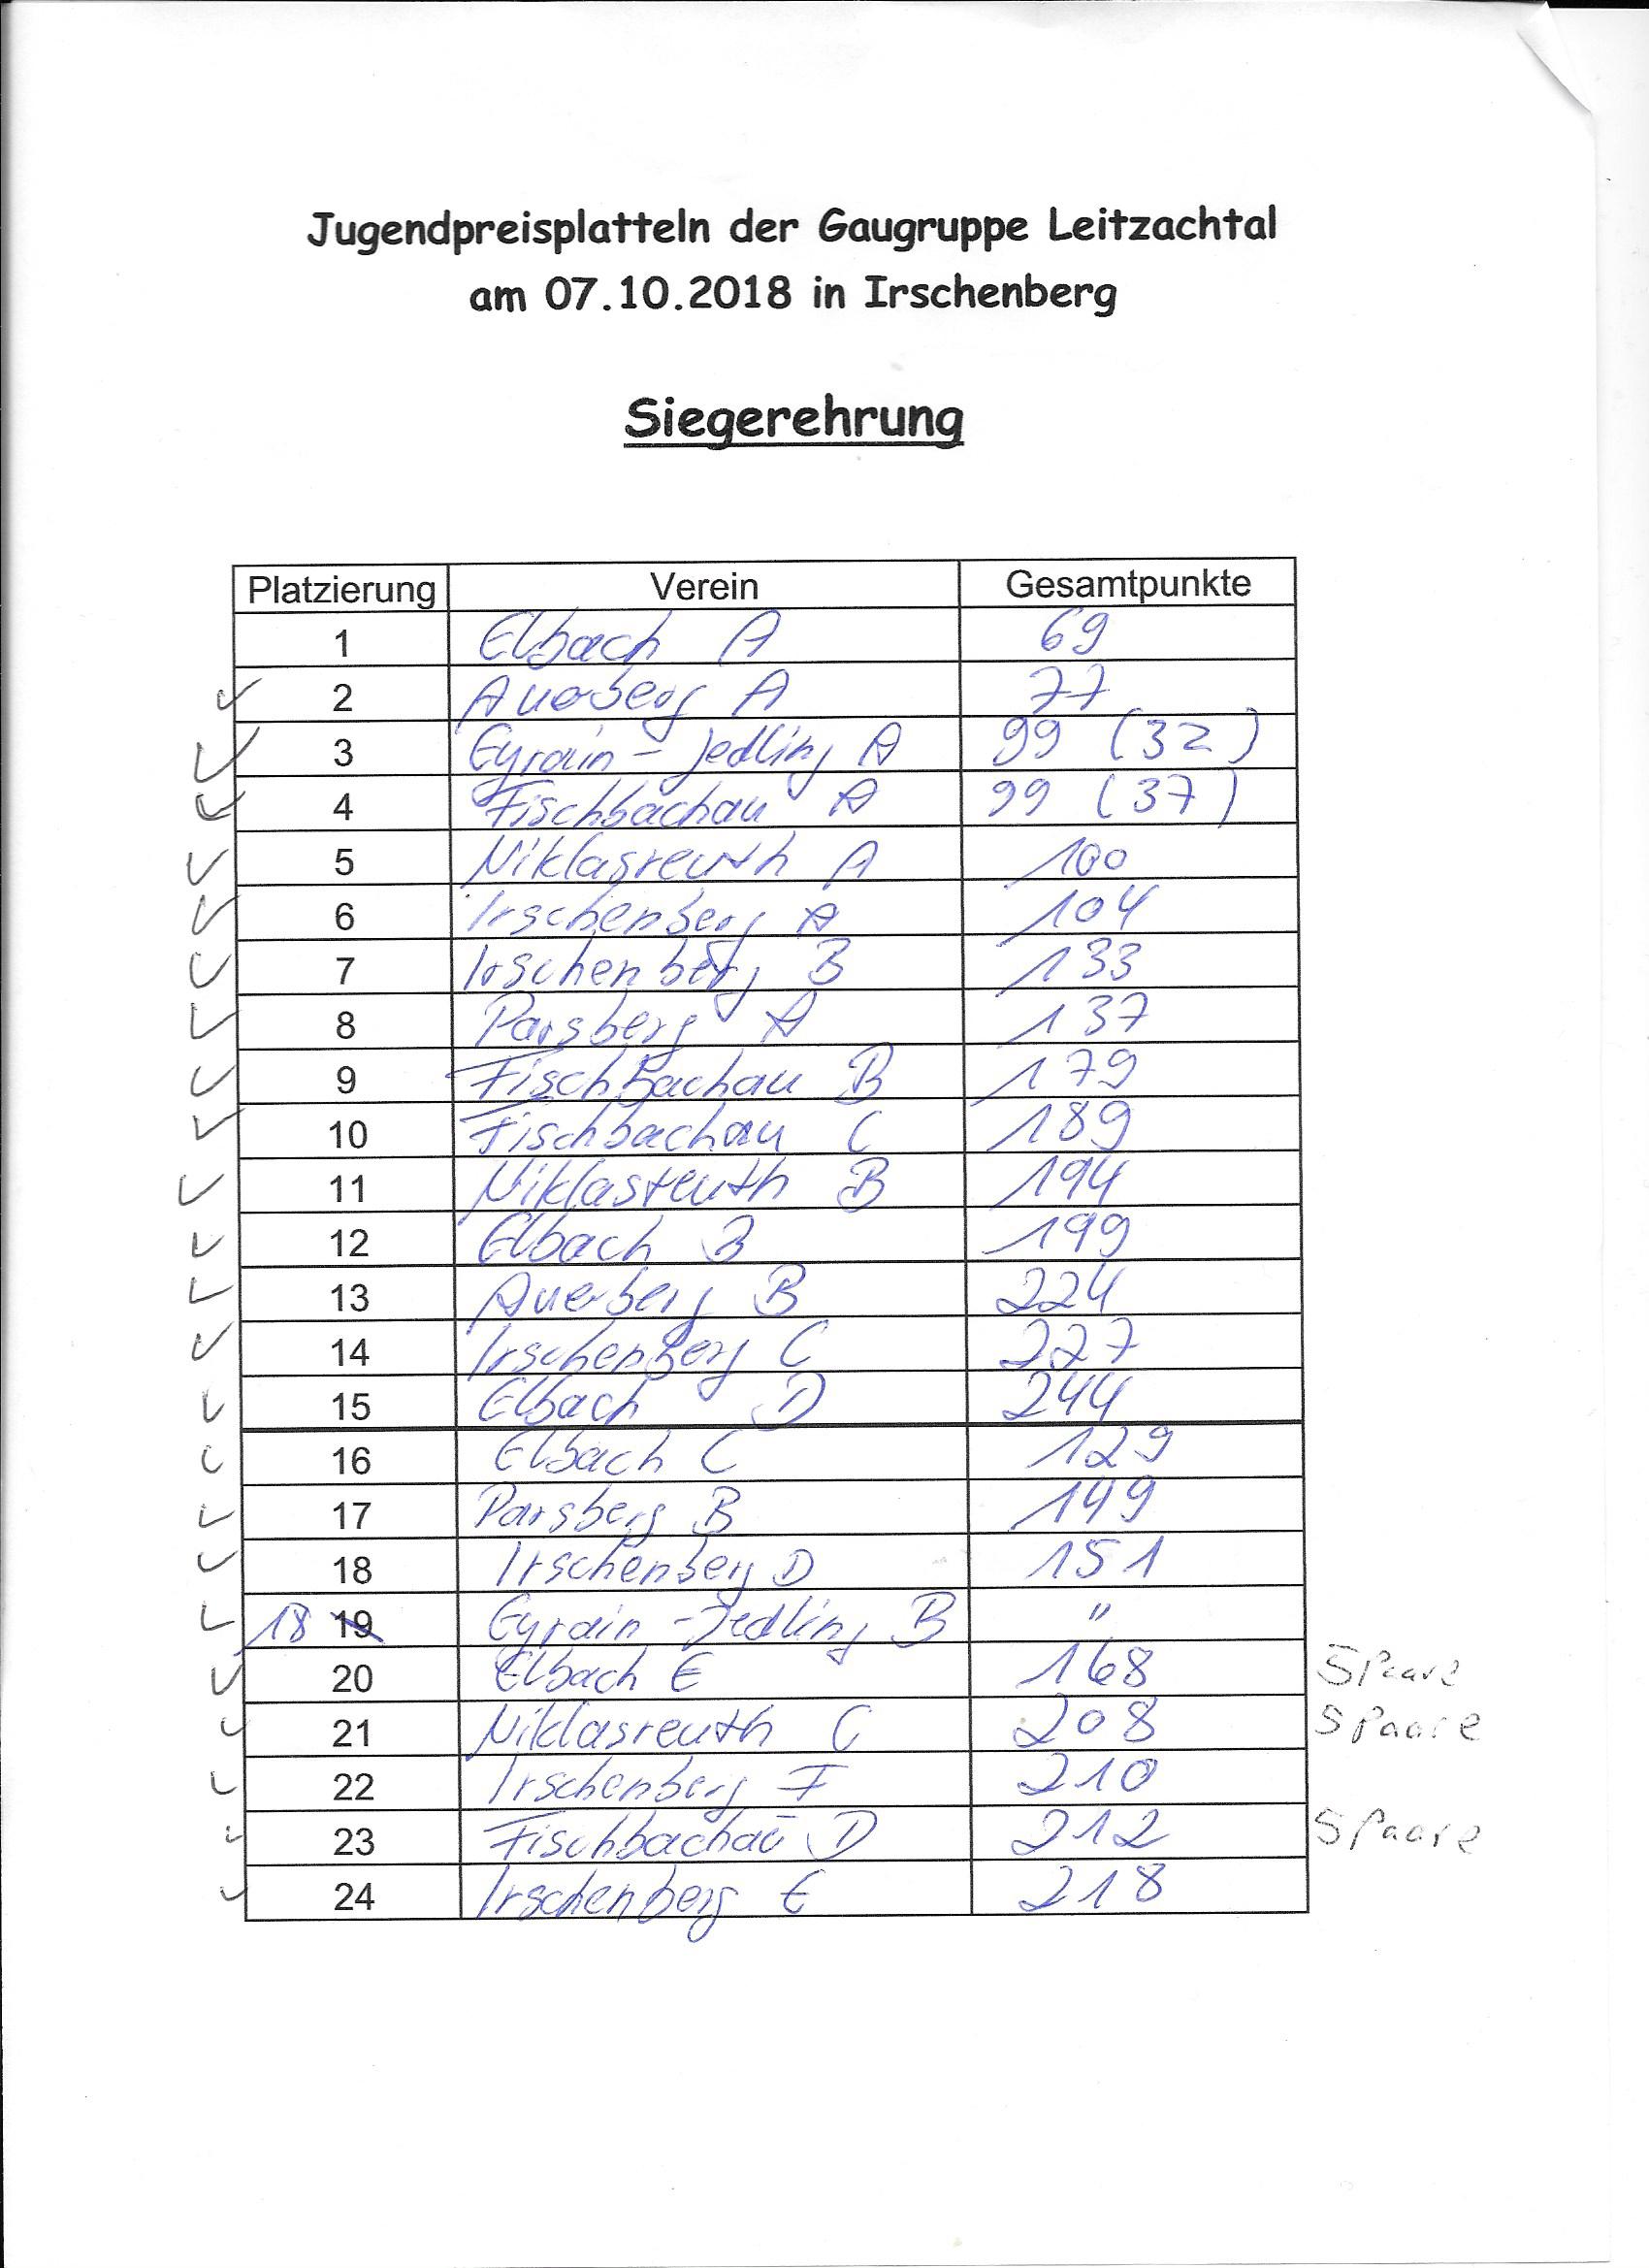 Jugendpreisplatteln der Gaugruppe Leitzachtal
am 07.10.2018 in Irschenberg
Siegerehrung
Platzierung Verein Gesamtpunkte
1 Elbach A 69
2 Auerberg A 77
3 Eyrain - Jedling A 99 (32)
4 Fischbachau A 99 (37)
5 Niklasreuth A 100
6 Irschenberg A 104
7 Irschenberg B 133
8 Parsberg A 137
9 Fischbachau B 179
10 Fischbachau C 189
11 Niklasreuth B 194
12 Elbach B 199
13 Auerberg B 224
14 Irschenberg C 227
15 Elbach D 244
16 Elbach C 129
17 Parsberg B 149
18 Irschenberg D 151
18 19 Eyrain - Jedling B "
20 Elbach E 168 5 Paare
21 Niklasreuth C 208 5 Paare
22 Irschenberg F 210
23 Fischbachau D 212 5 Paare
24 Irschenberg E 218